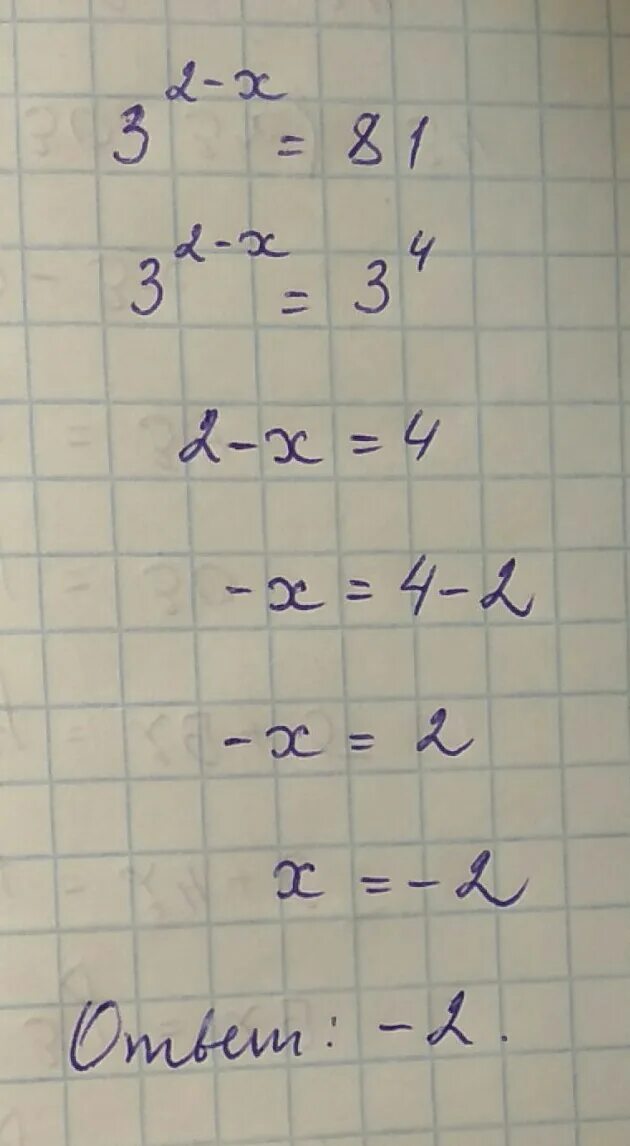 3^{2-x} = 81
3^{2-x} = 3^4
2-x = 4
-x = 4-2
-x = 2
x = -2
Ответ: -2.